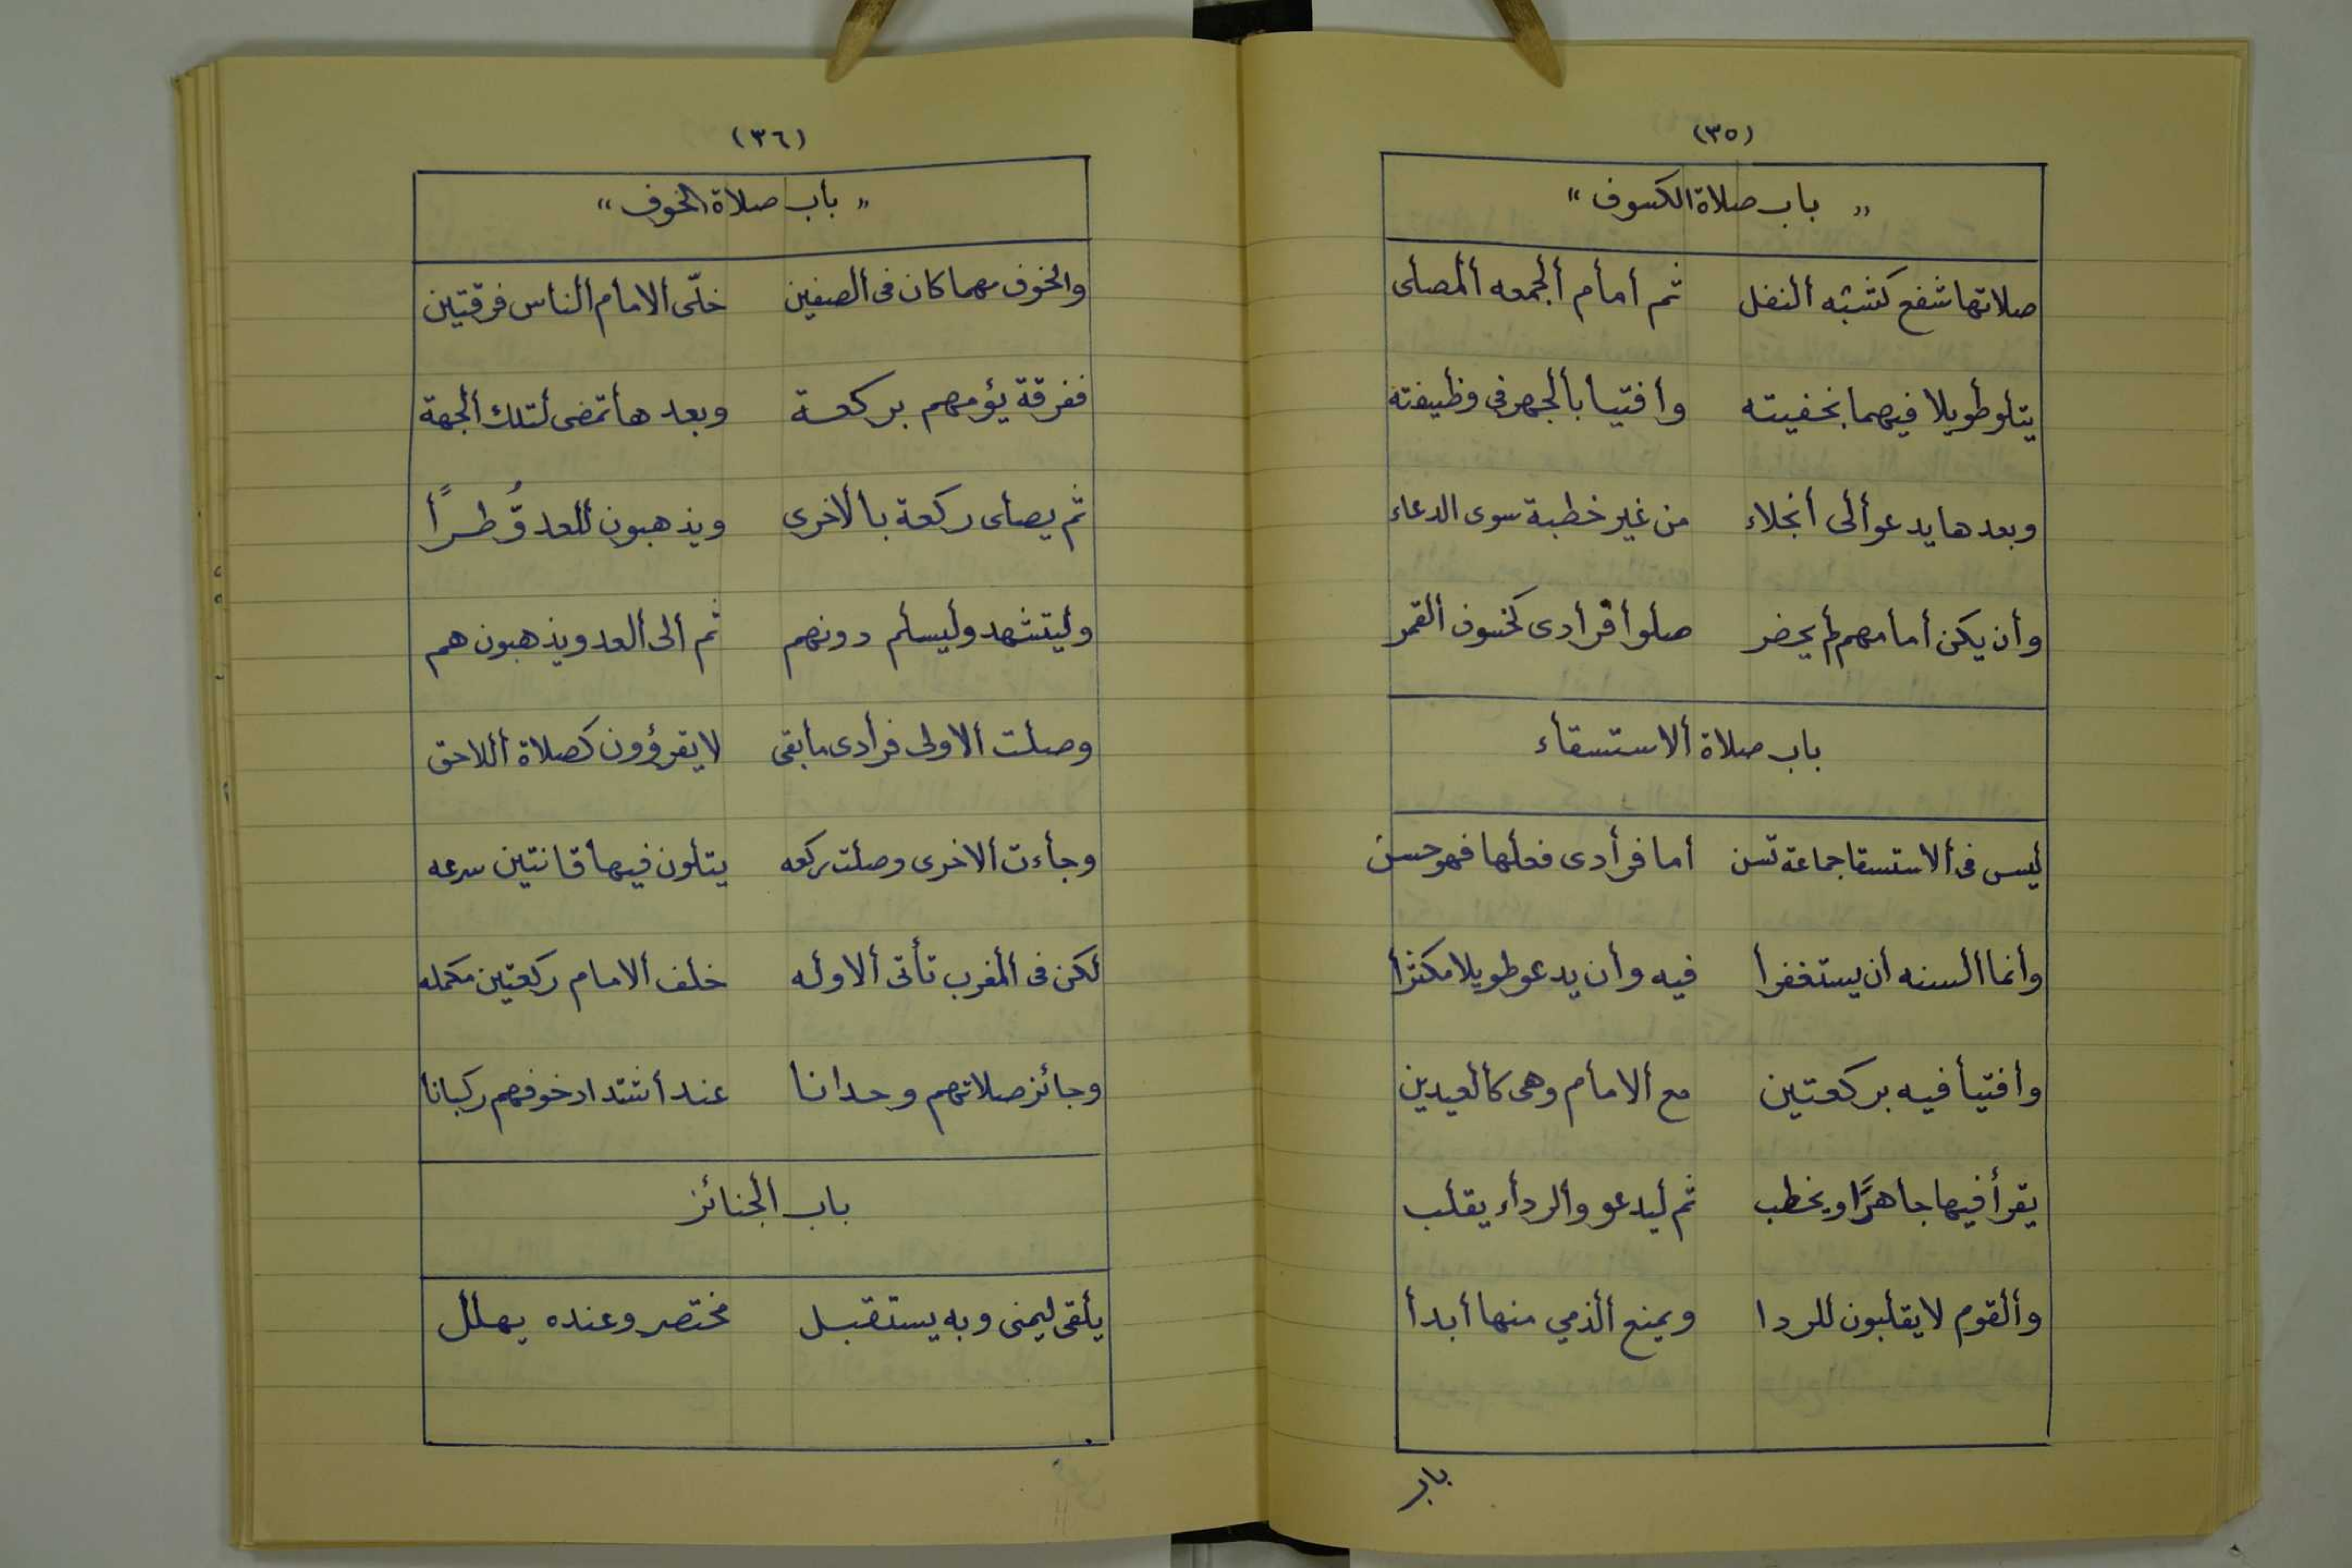 (٣٥)
„ باب صلاة الكسوف “
صلاتها شفع كشبه ألنفل ثم أمام ألجمعه ألمصلى
يتلو طويلا فيهما بخفيته وأفتيا بألجهر فى وظيفته
وبعدها يدعو ألى أنجلاء من غير خطبة سوى الدعاء
وأن يكن أمامهم لم يحضر صلوأ فرأدى كخسوف ألقمر
باب صلاة ألاستسقأء
ليس فى ألاستسقا جماعة تسن أما فرأدى فعلها فهو حسن
وأنما ألسنه ان يستغفرأ فيه وأن يدعو طويلا مكثرأ
وأفتيأ فيه بركعتين مع ألامام وهى كألعيدين
يقرأ فيها جاهرًا ويخطب ثم ليدعو وألردأء يقلب
وألقوم لا يقلبون للردا ويمنع ألذمي منها أبدأ
باب
(٣٦)
„ باب صلاة الخوف “
وألخوف مهما كان فى ألصفين خلّى ألامام ألناس فرقتين
ففرقة يؤمهم بركعة وبعدها تمضى لتلك ألجهة
ثم يصلى ركعة بألاخرى ويذهبون للعدوُّ طرًأ
وليتشهد وليسلم دونهم ثم ألى ألعدو يذهبون هم
وصلت ألاولى فرأدى مابقى لا يقرؤون كصلاة أللاحق
وجأءت ألاخرى وصلت ركعه يتلون فيها قانتين سرعه
لكن فى ألمغرب تأتى ألاوله خلف ألامام ركعتين مكمله
وجائز صلاتهم وحدانا عند أشتداد خوفهم ركبانا
باب ألجنائز
يلقى ليمنى وبه يستقبل مختصر وعنده يهلل